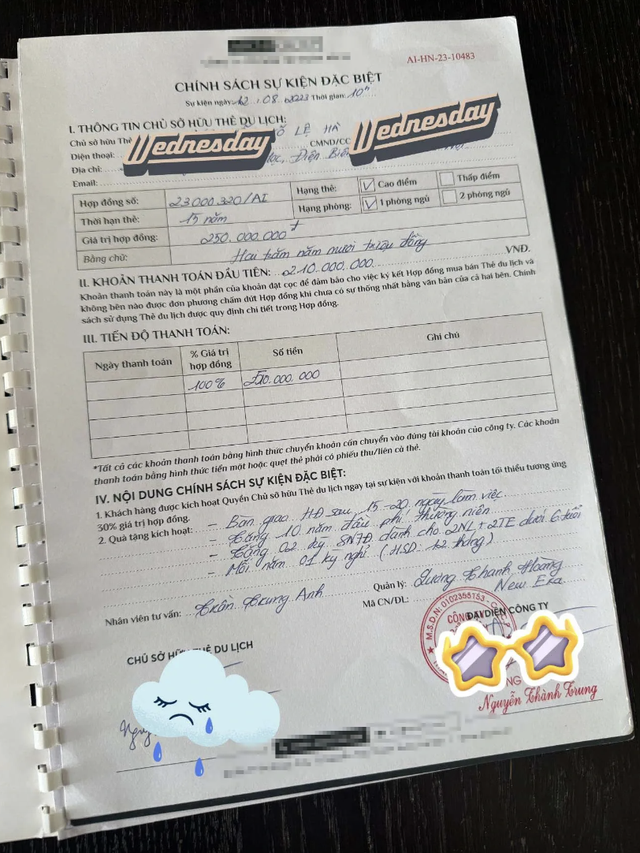 AI-HN-23-10483
CHÍNH SÁCH SỰ KIỆN ĐẶC BIỆT
Sự kiện ngày: 12.08.2023 Thời gian: 10h
I. THÔNG TIN CHỦ SỞ HỮU THẺ DU LỊCH:
Chủ sở hữu Thẻ LỆ HÀ
Wednesday
Wednesday
Điện thoại: CMND/CC
Địa chỉ: Điện Biên
Email:
Hợp đồng số: 23.000.320/AI Hạng thẻ: ✓ Cao điểm Thấp điểm
Thời hạn thẻ: 15 năm Hạng phòng: ✓ 1 phòng ngủ 2 phòng ngủ
Giá trị hợp đồng: 250.000.000đ
Bằng chữ: Hai trăm năm mươi triệu đồng
II. KHOẢN THANH TOÁN ĐẦU TIÊN: 210.000.000 VNĐ.
Khoản thanh toán này là một phần của khoản đặt cọc để đảm bảo cho việc ký kết Hợp đồng mua bán Thẻ du lịch và
không bên nào được đơn phương chấm dứt Hợp đồng khi chưa có sự thống nhất bằng văn bản của cả hai bên. Chính
sách sử dụng Thẻ du lịch được quy định chi tiết trong Hợp đồng.
III. TIẾN ĐỘ THANH TOÁN:
Ngày thanh toán % Giá trị hợp đồng Số tiền Ghi chú
100% 250.000.000
*Tất cả các khoản thanh toán bằng hình thức chuyển khoản cần chuyển vào đúng tài khoản của công ty. Các khoản
thanh toán bằng hình thức tiền mặt hoặc quẹt thẻ phải có phiếu thu/liên cà thẻ.
IV. NỘI DUNG CHÍNH SÁCH SỰ KIỆN ĐẶC BIỆT:
1. Khách hàng được kích hoạt Quyền Chủ sở hữu Thẻ du lịch ngay tại sự kiện với khoản thanh toán tối thiểu tương ứng
30% giá trị hợp đồng.
2. Quà tặng kích hoạt: - Bàn giao HĐ sau 15-20 ngày làm việc.
- Tặng 10 năm đầu phí thường niên
- Tặng 02 kỳ 3N2Đ dành cho 2NL + 2TE dưới 6 tuổi
- Mỗi năm 01 kỳ nghỉ (HSD: 12 tháng)
Nhân viên tư vấn: Trần Trung Anh Quản lý: Dương Thanh Hoàng
Mã CN/ĐL: New Era
M.S.D.N: 0102355153
CÔNG
CHỦ SỞ HỮU THẺ DU LỊCH ĐẠI DIỆN CÔNG TY
Nguyễn Thành Trung